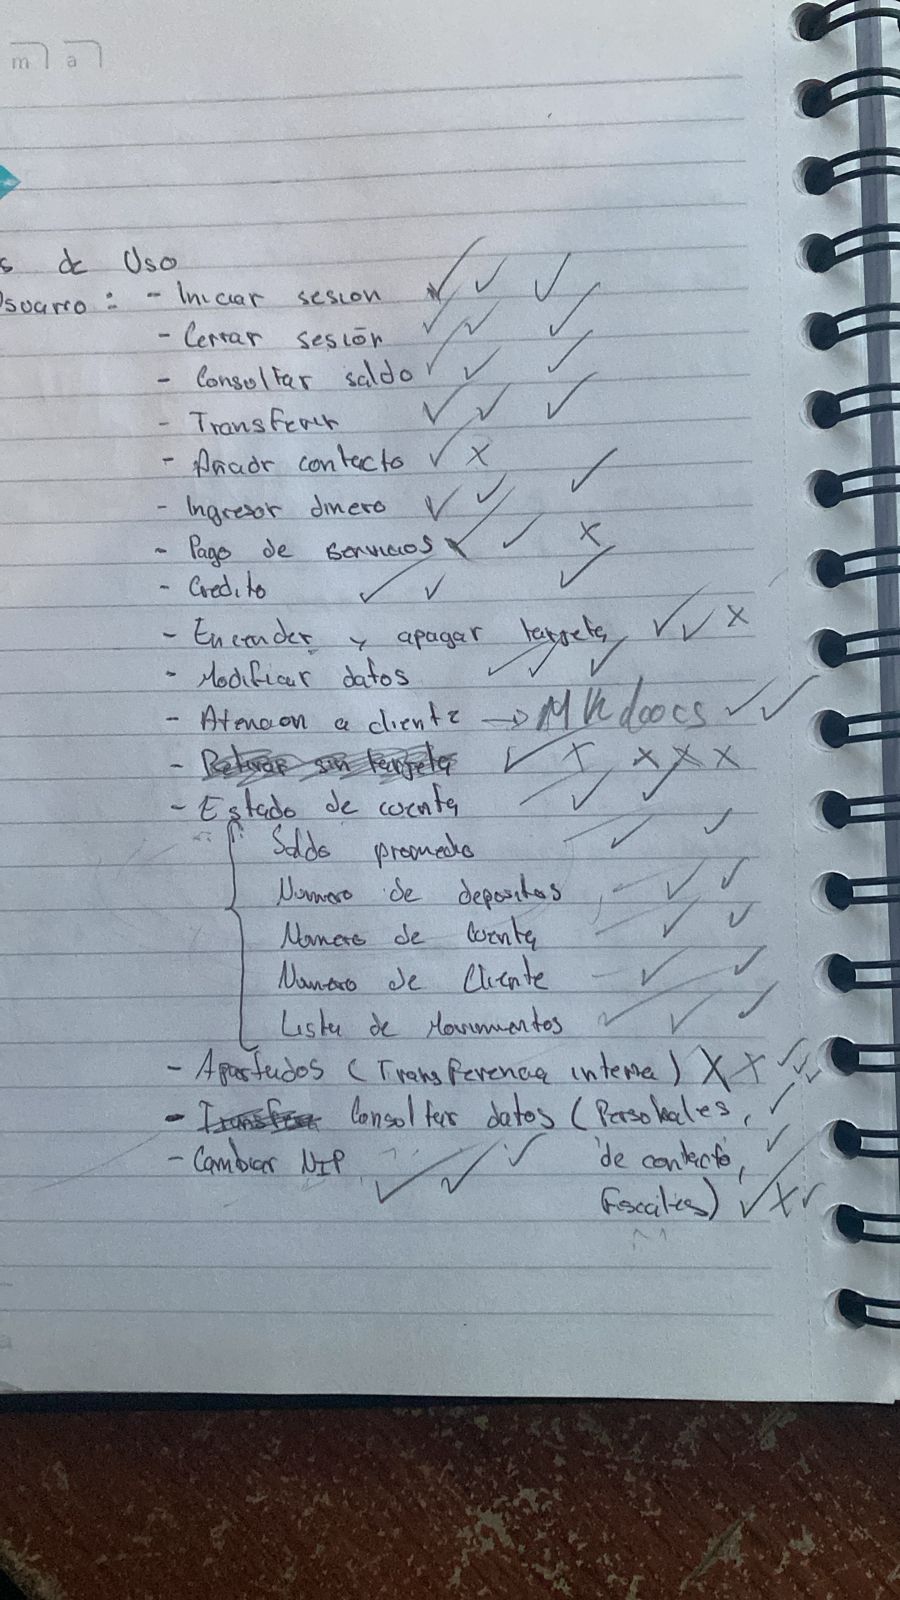 m a
s de Uso
suario : - Iniciar sesion ✓ ✓ ✓
- Cerrar sesión ✓ ✓ ✓
- Consultar saldo ✓ ✓ ✓
- Transferir ✓ ✓ ✓
- Añadir contacto ✓ X
- Ingresar dinero ✓ ✓ ✓
- Pago de servicios ✓ ✓ X
- Credito ✓ ✓ ✓
- Encender y apagar targeta ✓ ✓ X
- Modificar datos ✓ ✓ ✓
- Atencion a cliente → MKdocs ✓ ✓
- Retirar sin targeta ✓ X X X X
- Estado de cuenta ✓ ✓
Saldo promedio ✓ ✓
Numero de depositos ✓ ✓
Numero de cuenta ✓ ✓
Numero de Cliente ✓ ✓
Lista de Movimientos ✓ ✓ ✓
- Apartados (Transferencia interna) X X ✓ ✓
- Transfer Consultar datos (Personales, ✓
- Cambiar NIP ✓ ✓ ✓ de contacto, ✓
Fiscales) ✓ X ✓